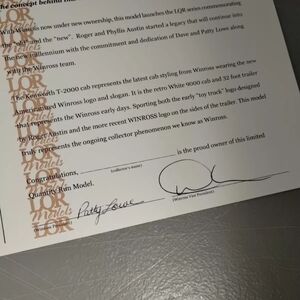 The concept behind
With Winross now under new ownership, this model launches the LQR series commemorating
the "old" and the "new". Roger and Phyllis Austin started a legacy that will continue into
the new millennium with the commitment and dedication of Dave and Patty Lowe along
with the Winross team.
The Kenworth T-2000 cab represents the latest cab styling from Winross wearing the new
Americanized Winross logo and slogan. It is the retro White 9000 cab and 32 foot trailer
that represents the Winross early days. Sporting both the early "toy truck" logo designed
by Roger Austin and the more recent WINROSS logo on the sides of the trailer. This model
truly represents the ongoing collector phenomenon we know as Winross.
Congratulations, is the proud owner of this limited
(collector's name)
Quantity Run Model.
Patty Lowe
(Winross President)
(Winross Vice President)
LQR
Models
LQR
Models
LQR
Models
LQR